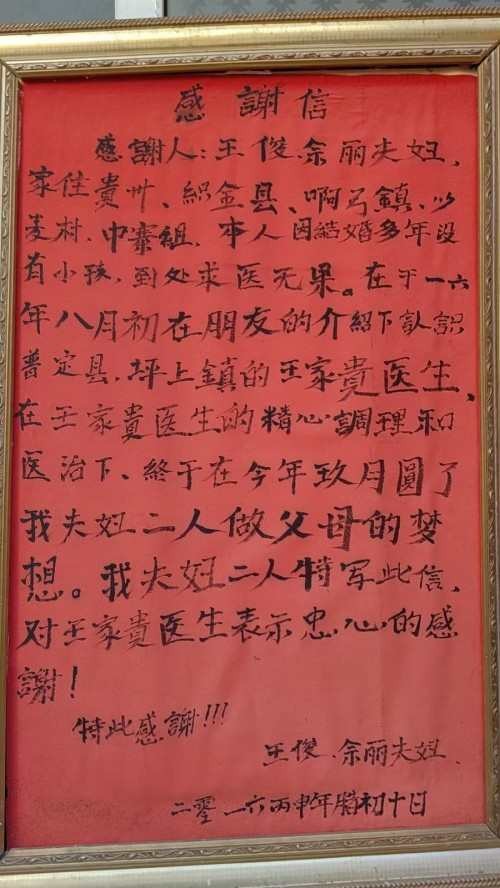 感謝信
感謝人：王俊、余丽夫妇、
家住貴州、織金县、啊弓鎮、以
麦村、中寨組、本人因結婚多年没
有小孩，到处求医无果。在于一六
年八月初在朋友的介紹下認識
普定县，坪上鎮的王家貴医生、
在王家貴医生的精心調理和
医治下、終于在今年玖月圓了
我夫妇二人做父母的梦
想。我夫妇二人特写此信，
对王家貴医生表示忠心的感
謝！
特此感謝!!!
王俊、余丽夫妇、
二零一六丙申年腊初十日